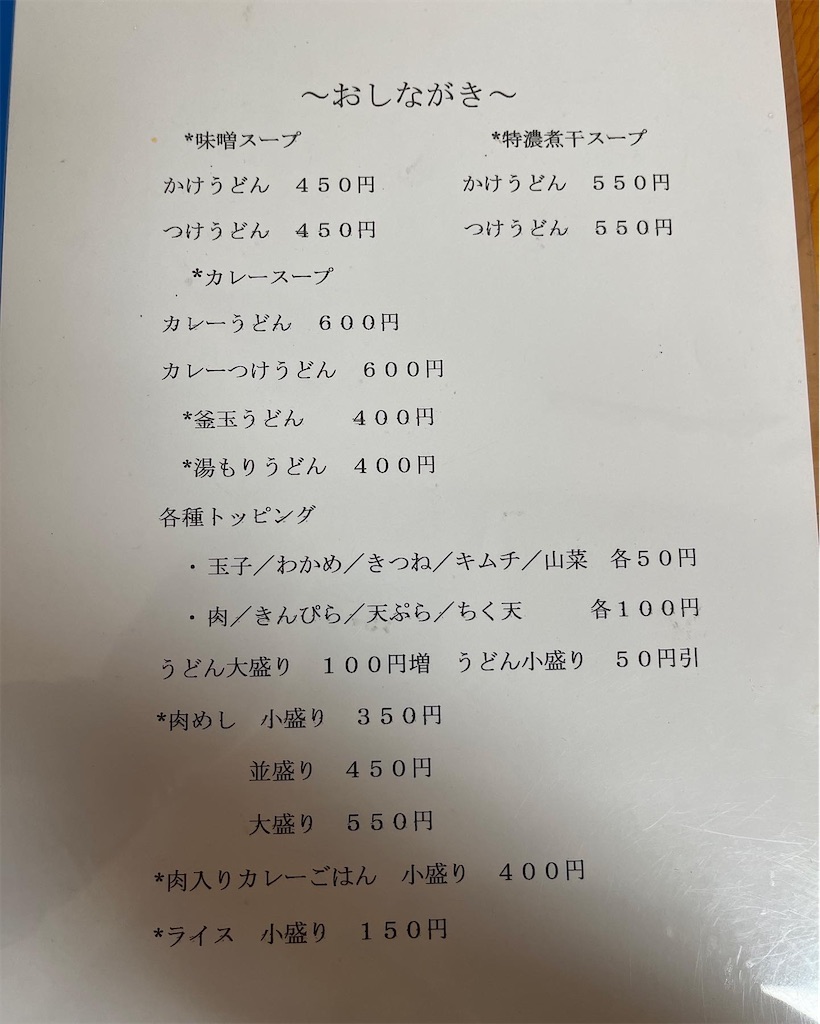 ～おしながき～
*味噌スープ　　*特濃煮干スープ
かけうどん　４５０円　　かけうどん　５５０円
つけうどん　４５０円　　つけうどん　５５０円
*カレースープ
カレーうどん　６００円
カレーつけうどん　６００円
*釜玉うどん　　４００円
*湯もりうどん　４００円
各種トッピング
・玉子／わかめ／きつね／キムチ／山菜　各５０円
・肉／きんぴら／天ぷら／ちく天　　　各１００円
うどん大盛り　１００円増　うどん小盛り　５０円引
*肉めし　小盛り　３５０円
並盛り　４５０円
大盛り　５５０円
*肉入りカレーごはん　小盛り　４００円
*ライス　小盛り　１５０円